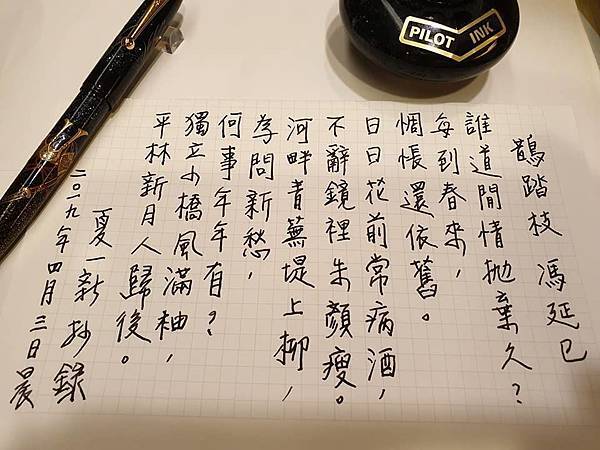 PILOT INK
鵲踏枝 馮延巳
誰道閒情拋棄久？
每到春來，
惆悵還依舊。
日日花前常病酒，
不辭鏡裡朱顏瘦。
河畔青蕪堤上柳，
為問新愁，
何事年年有？
獨立小橋風滿袖，
平林新月人歸後。
夏一新 抄錄
二〇一九年四月三日晨